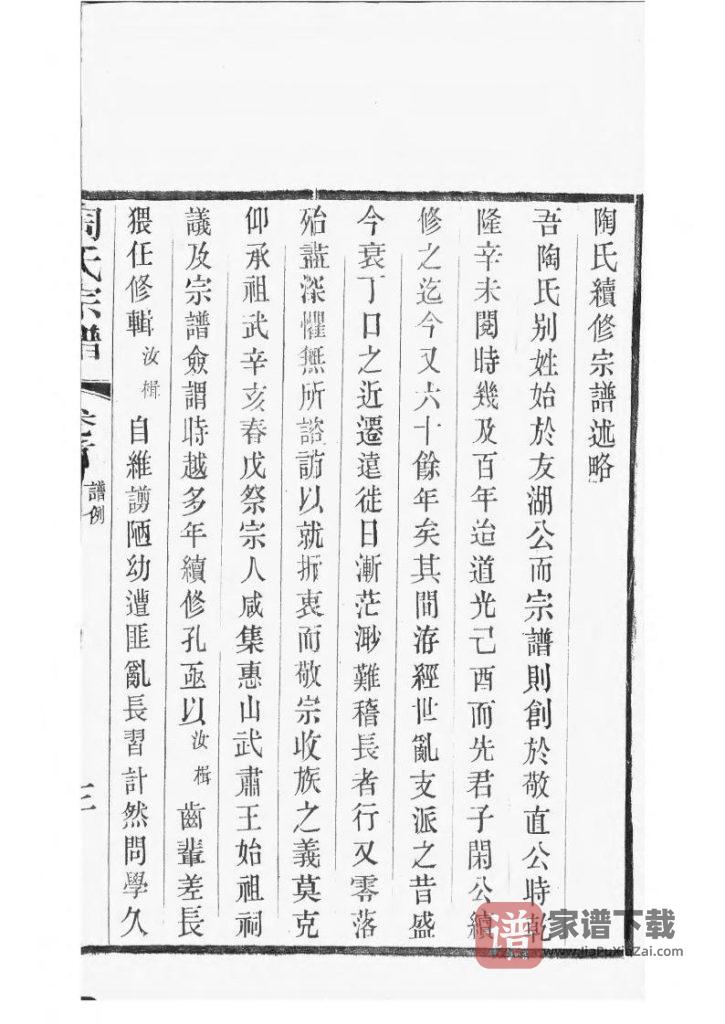 陶氏續修宗譜述略
吾陶氏別姓始於友湖公而宗譜則創於敬直公時乾
隆辛未閱時幾及百年迨道光己酉而先君子閑公續
修之迄今又六十餘年矣其間洊經世亂支派之昔盛
今衰丁口之近遷遠徙日漸茫渺難稽長者行又零落
殆盡深懼無所諮訪以就折衷而敬宗收族之義莫克
仰承祖武辛亥春戊祭宗人咸集惠山武肅王始祖祠
議及宗譜僉謂時越多年續修孔亟以汝楫齒輩差長
猥任修輯汝楫自維譾陋幼遭匪亂長習計然問學久
陶氏宗譜
譜例
三
譜 家谱下载
www.JiaPuXiaZai.com